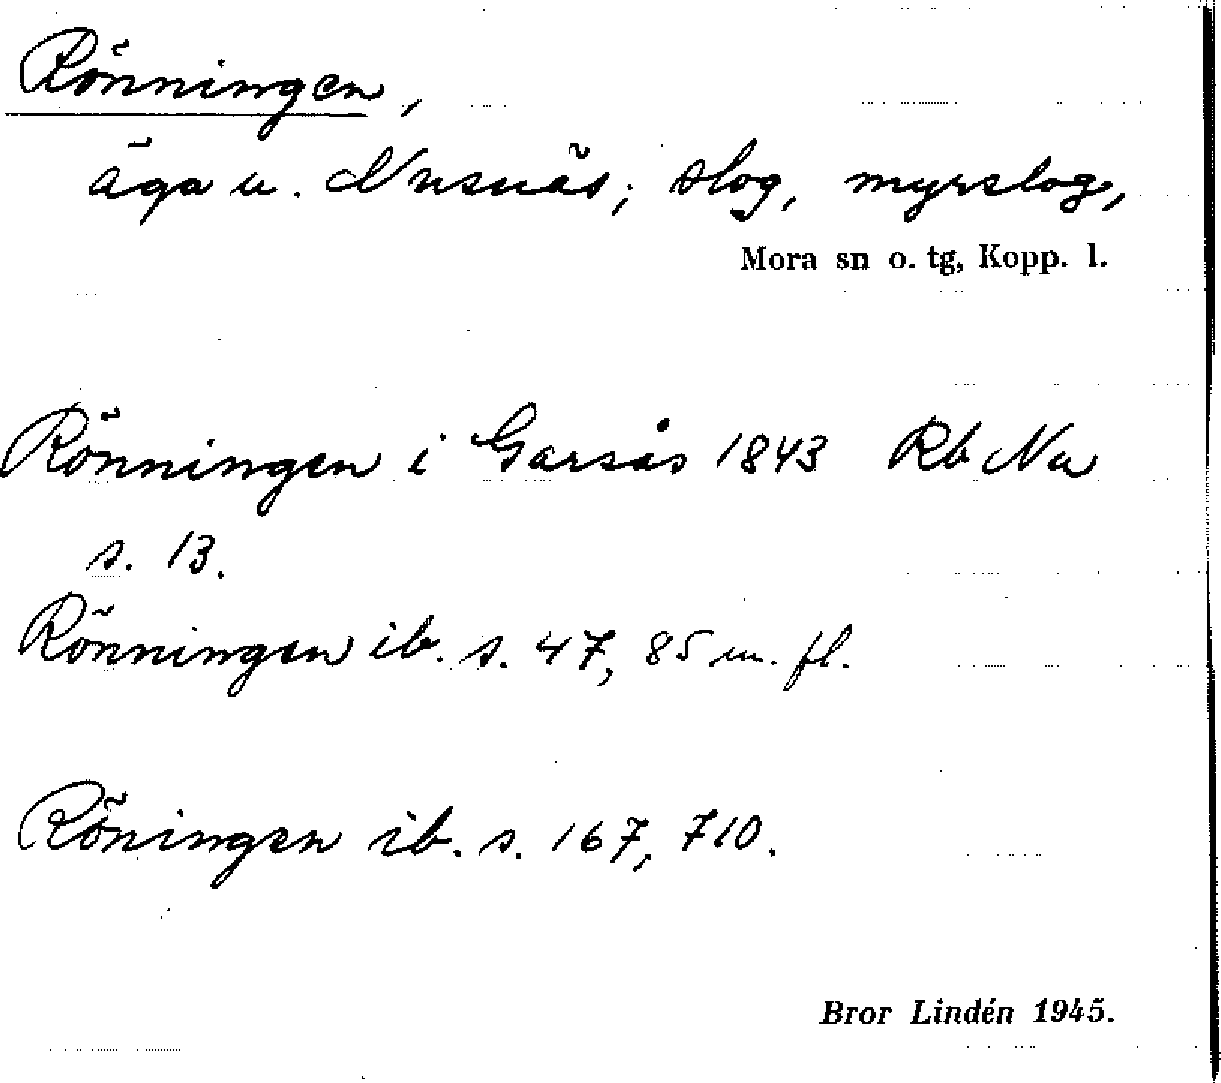 Rönningen,
äga u. Nusnäs; slog, myrslog,
Mora sn o. tg, Kopp. l.
Rönningen i Garsås 1843 Rb Nu
s. 13.
Rönningen ib. s. 47, 85 m. fl.
Röningen ib. s. 167, 710.
Bror Lindén 1945.